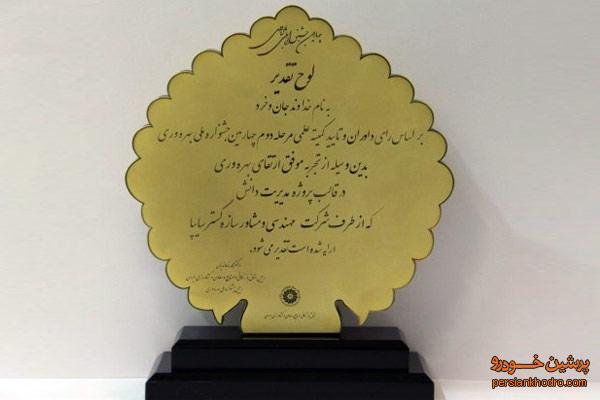 چهارمین جشنواره ملی بهره‌وری
لوح تقدیر
به نام خداوند جان و خرد
بر اساس رای داوران و تایید کمیته علمی مرحله دوم چهارمین جشنواره ملی بهره وری
بدین وسیله از تجربه موفق ارتقای بهره وری
در قالب پروژه مدیریت دانش
که از طرف شرکت مهندسی و مشاور سازه گستر سایپا
ارایه شده است تقدیر می شود.
پرشین خودرو
persiankhodro.com